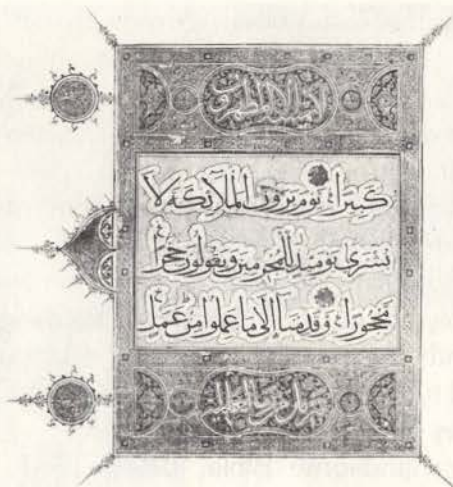 لا يمسه إلا المطهرون
كبيرا يوم يرون الملائكة لا
بشرى يومئذ للمجرمين ويقولون حجرا
محجورا وقدمنا إلى ما عملوا من عمل
تنزيل من رب العالمين